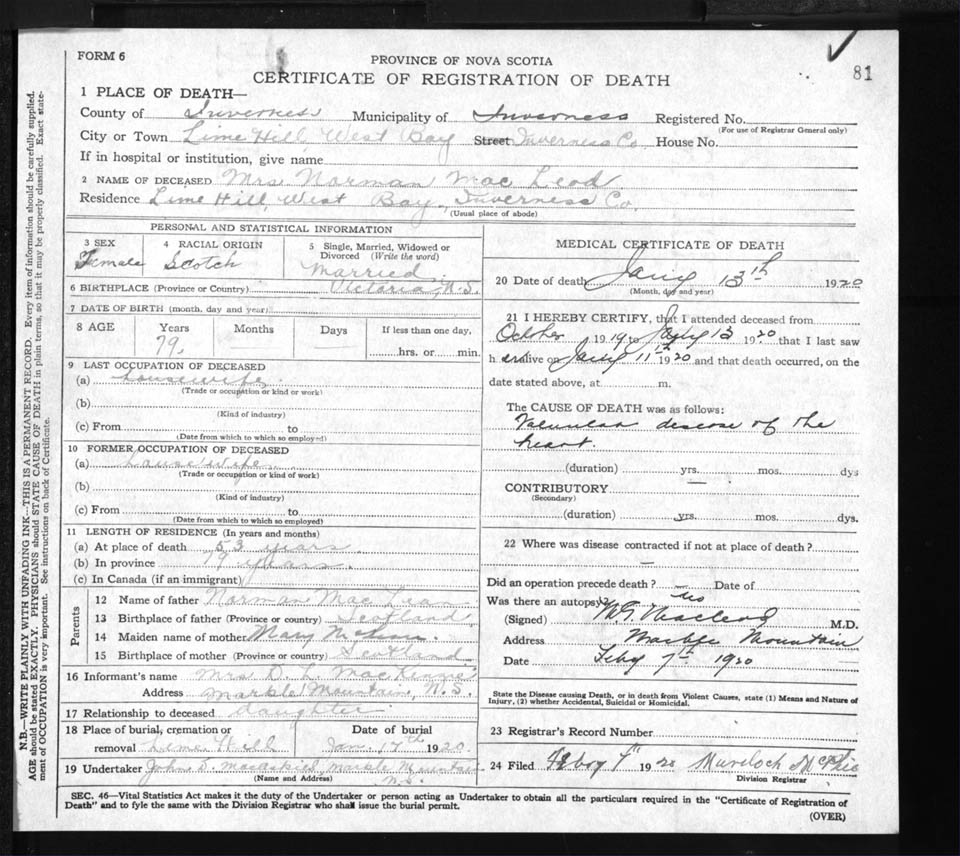 FORM 6
PROVINCE OF NOVA SCOTIA
CERTIFICATE OF REGISTRATION OF DEATH
81
1 PLACE OF DEATH—
County of Inverness Municipality of Inverness Registered No.
(For use of Registrar General only)
City or Town Lime Hill, West Bay Street Inverness Co. House No.
If in hospital or institution, give name
2 NAME OF DECEASED Mrs Norman Mac Leod
Residence Lime Hill, West Bay, Inverness Co.
(Usual place of abode)
PERSONAL AND STATISTICAL INFORMATION
3 SEX 4 RACIAL ORIGIN 5 Single, Married, Widowed or Divorced (Write the word)
Female Scotch Married
6 BIRTHPLACE (Province or Country) Victoria N.S.
7 DATE OF BIRTH (month, day and year)
8 AGE Years Months Days If less than one day,
79 hrs. or min.
9 LAST OCCUPATION OF DECEASED
(a) housewife
(Trade or occupation or kind of work)
(b)
(Kind of industry)
(c) From to
(Date from which to which so employed)
10 FORMER OCCUPATION OF DECEASED
(a) housewife
(Trade or occupation or kind of work)
(b)
(Kind of industry)
(c) From to
(Date from which to which so employed)
11 LENGTH OF RESIDENCE (In years and months)
(a) At place of death 53 years
(b) In province 79 years.
(c) In Canada (if an immigrant)
Parents
12 Name of father Norman Mac Lean
13 Birthplace of father (Province or country) Scotland
14 Maiden name of mother Mary
15 Birthplace of mother (Province or country) Scotland
16 Informant's name Mrs D. L. MacKinnon
Address Marble Mountain, N.S.
17 Relationship to deceased daughter
18 Place of burial, cremation or removal Lime Hill Date of burial Jan. 17th 1920
19 Undertaker John S. MacAskill, Marble Mountain
(Name and Address) N.S.
MEDICAL CERTIFICATE OF DEATH
20 Date of death Jany 13th 1920
(Month, day and year)
21 I HEREBY CERTIFY, that I attended deceased from
October 1919 to Jany 13 1920 that I last saw
h er alive on Jany 11th 1920 and that death occurred, on the
date stated above, at m.
The CAUSE OF DEATH was as follows:
Valvular disease of the
heart.
(duration) yrs. mos. dys
CONTRIBUTORY
(Secondary)
(duration) yrs. mos. dys.
22 Where was disease contracted if not at place of death?
Did an operation precede death? no Date of
Was there an autopsy? no
(Signed) Macleod M.D.
Address Marble Mountain
Date Feby 7th 1920
State the Disease causing Death, or in death from Violent Causes, state (1) Means and Nature of
Injury, (2) whether Accidental, Suicidal or Homicidal.
23 Registrar's Record Number
24 Filed Febry 1920 Murdoch McPhie
Division Registrar
SEC. 46—Vital Statistics Act makes it the duty of the Undertaker or person acting as Undertaker to obtain all the particulars required in the "Certificate of Registration of
Death" and to fyle the same with the Division Registrar who shall issue the burial permit.
(OVER)
N.B.—WRITE PLAINLY WITH UNFADING INK—THIS IS A PERMANENT RECORD. Every item of information should be carefully supplied.
AGE should be stated EXACTLY. PHYSICIANS should STATE CAUSE OF DEATH in plain terms, so that it may be properly classified. Exact state-
ment of OCCUPATION is very important. See instructions on back of Certificate.